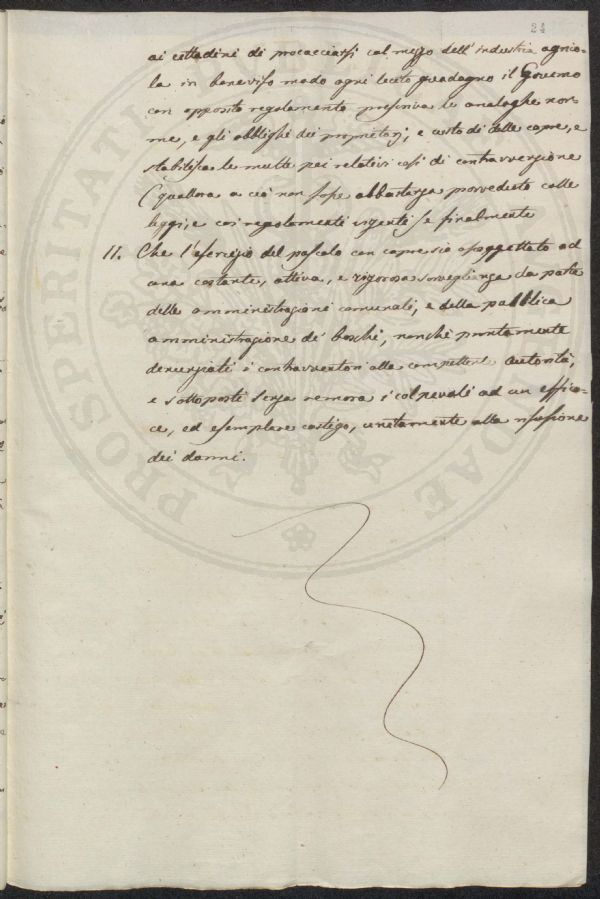 24
ai cittadini di procacciarsi col mezzo dell'industria agrico-
la in beneviso modo ogni lecito guadagno il Governo
con apposito regolamento prescriva le analoghe nor-
me, e gli obblighi dei proprietarj, e custodi delle capre, e
stabilisca le multe pei relativi casi di contravvenzione
(qualora a ciò non fosse abbastanza provveduto colle
leggi, e coi regolamenti vigenti) e finalmente
11. Che l'esercizio del pascolo con capre sia assoggettato ad
una costante, attiva, e rigorosa sorveglianza da parte
delle amministrazioni comunali, e della pubblica
amministrazione de' boschi, nonchè prontamente
denunziati i contravventori alla competente Autorità,
e sottoposti senza remora i colpevoli ad un effica-
ce, ed esemplare castigo, unitamente alla rifusione
dei danni.
PROSPERITATI